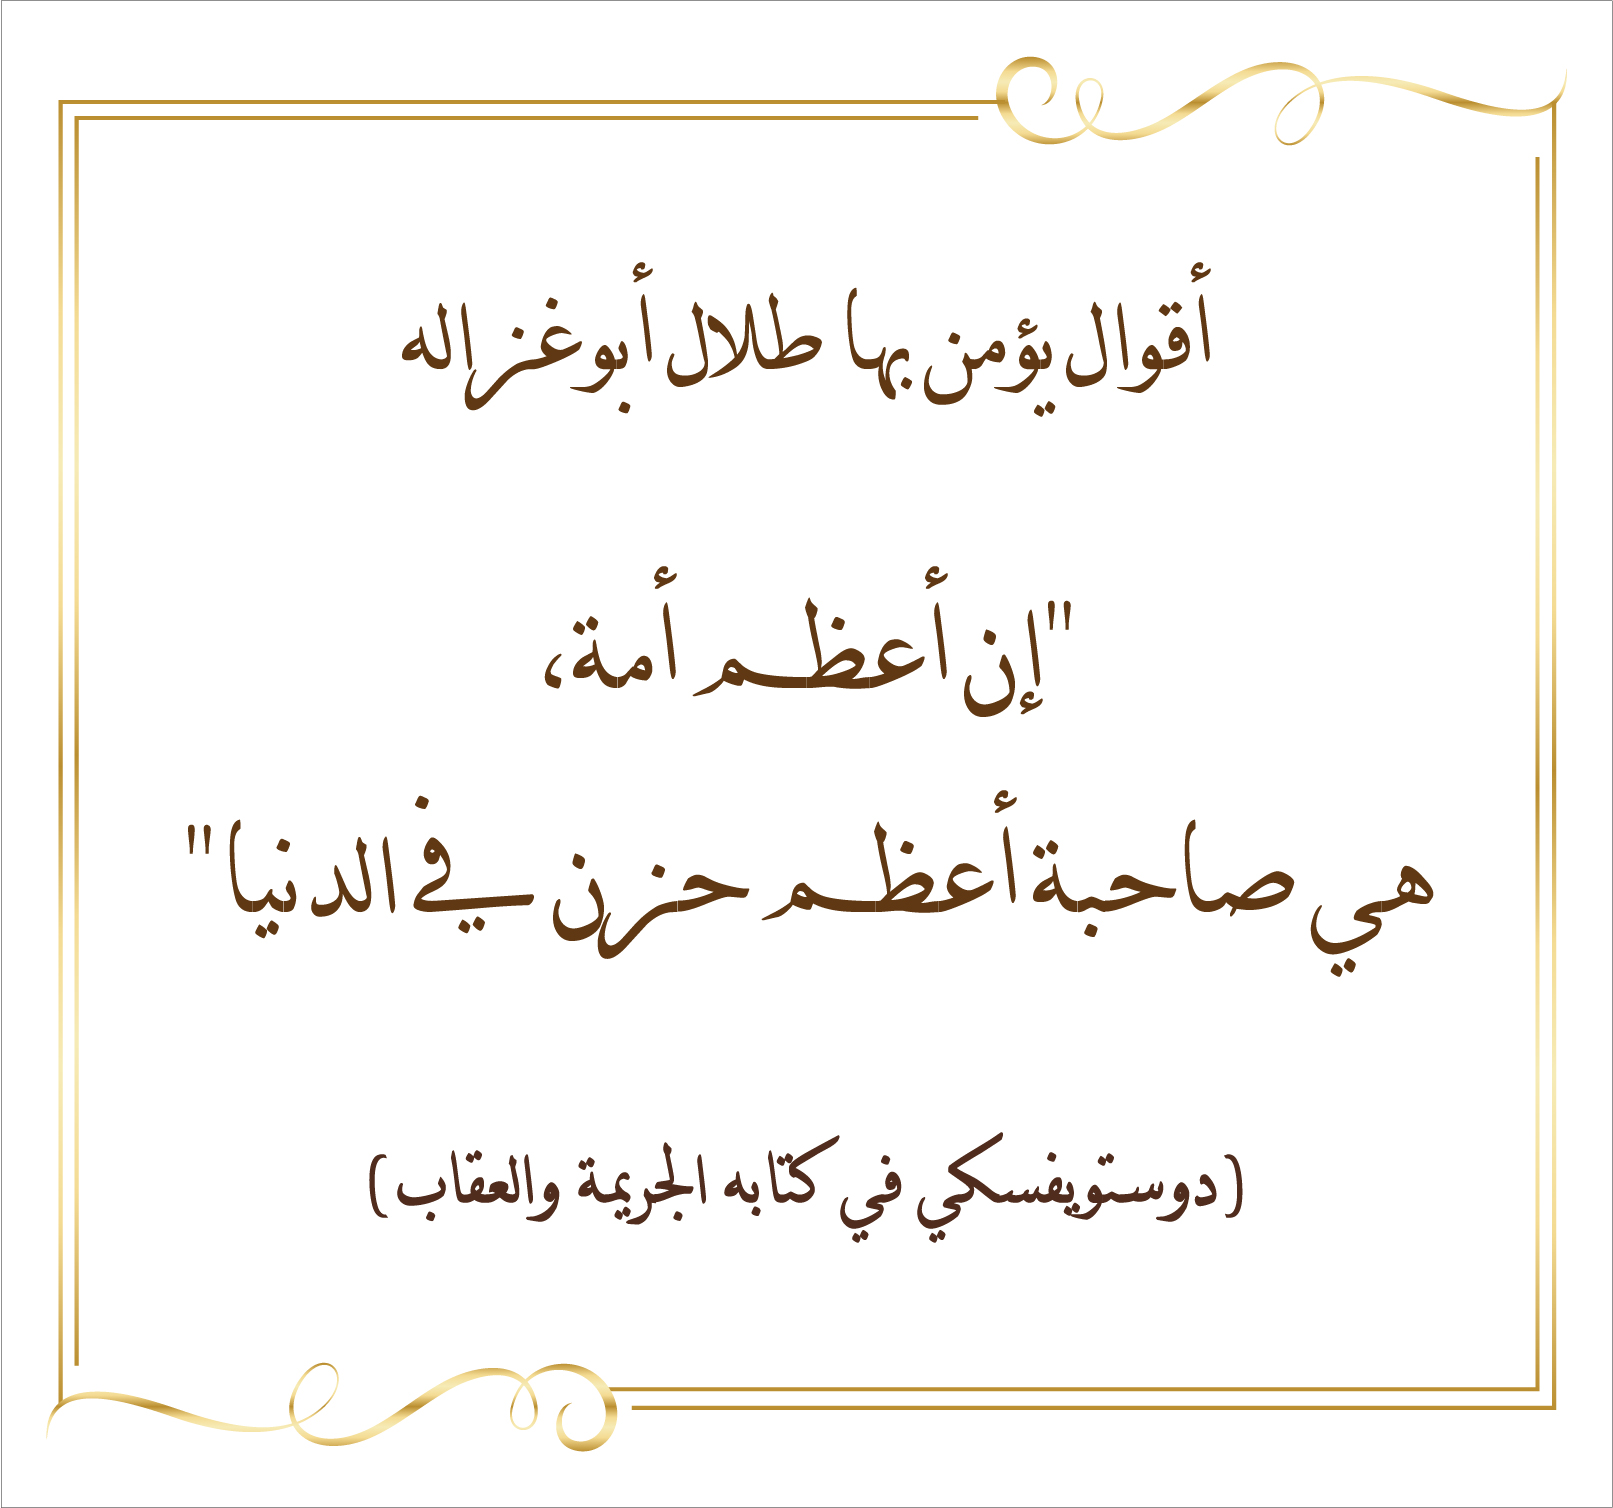 أقوال يؤمن بها طلال أبوغزاله
"إن أعظم أمة،
هي صاحبة أعظم حزن في الدنيا"
(دوستويفسكي في كتابه الجريمة والعقاب)